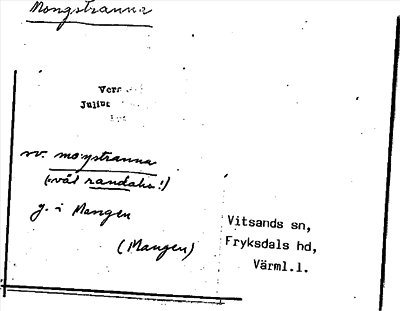 Mongstranna
Julius
vv. mo:ŋstranna
randaha!)
y. i Mangen
(Mangen)
Vitsands sn,
Fryksdals hd,
Värml.l.